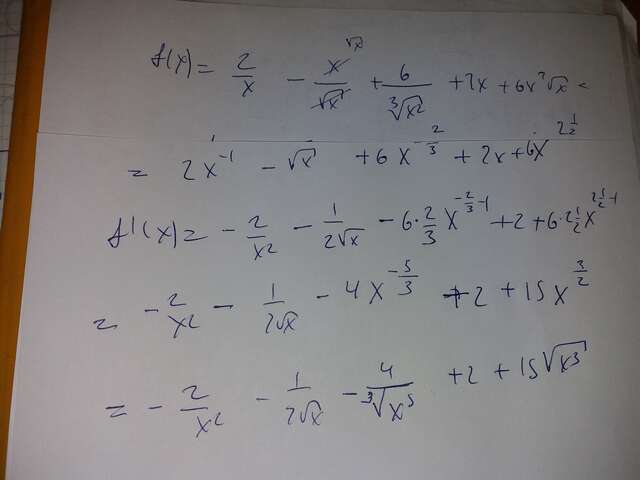 f(x) = 2/x - x/√x √x + 6/∛x² + 2x + 6x²√x =
= 2x^-1 - √x + 6x^-2/3 + 2x + 6x^2 1/2
f'(x) = - 2/x² - 1/2√x - 6·2/3 x^-2/3-1 + 2 + 6·2 1/2 x^2 1/2-1
= - 2/x² - 1/2√x - 4x^-5/3 + 2 + 15x^3/2
= - 2/x² - 1/2√x - 4/∛x⁵ + 2 + 15√x³